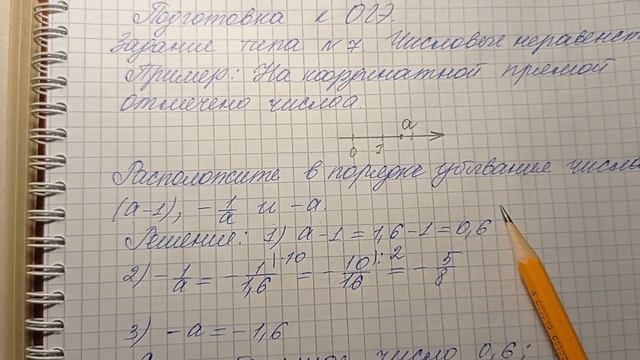 Подготовка к ОГЭ.
Задание типа №7. Числовые неравенст
Пример: На координатной прямой
отмечено число a.
a
0 1
Расположите в порядке убывание числа
(a-1), -1/a и -a.
Решение: 1) a-1=1,6-1=0,6
2) -1/a = -1/1,6 |·10 = -10/16 |:2 = -5/8
3) -a = -1,6
число 0,6;